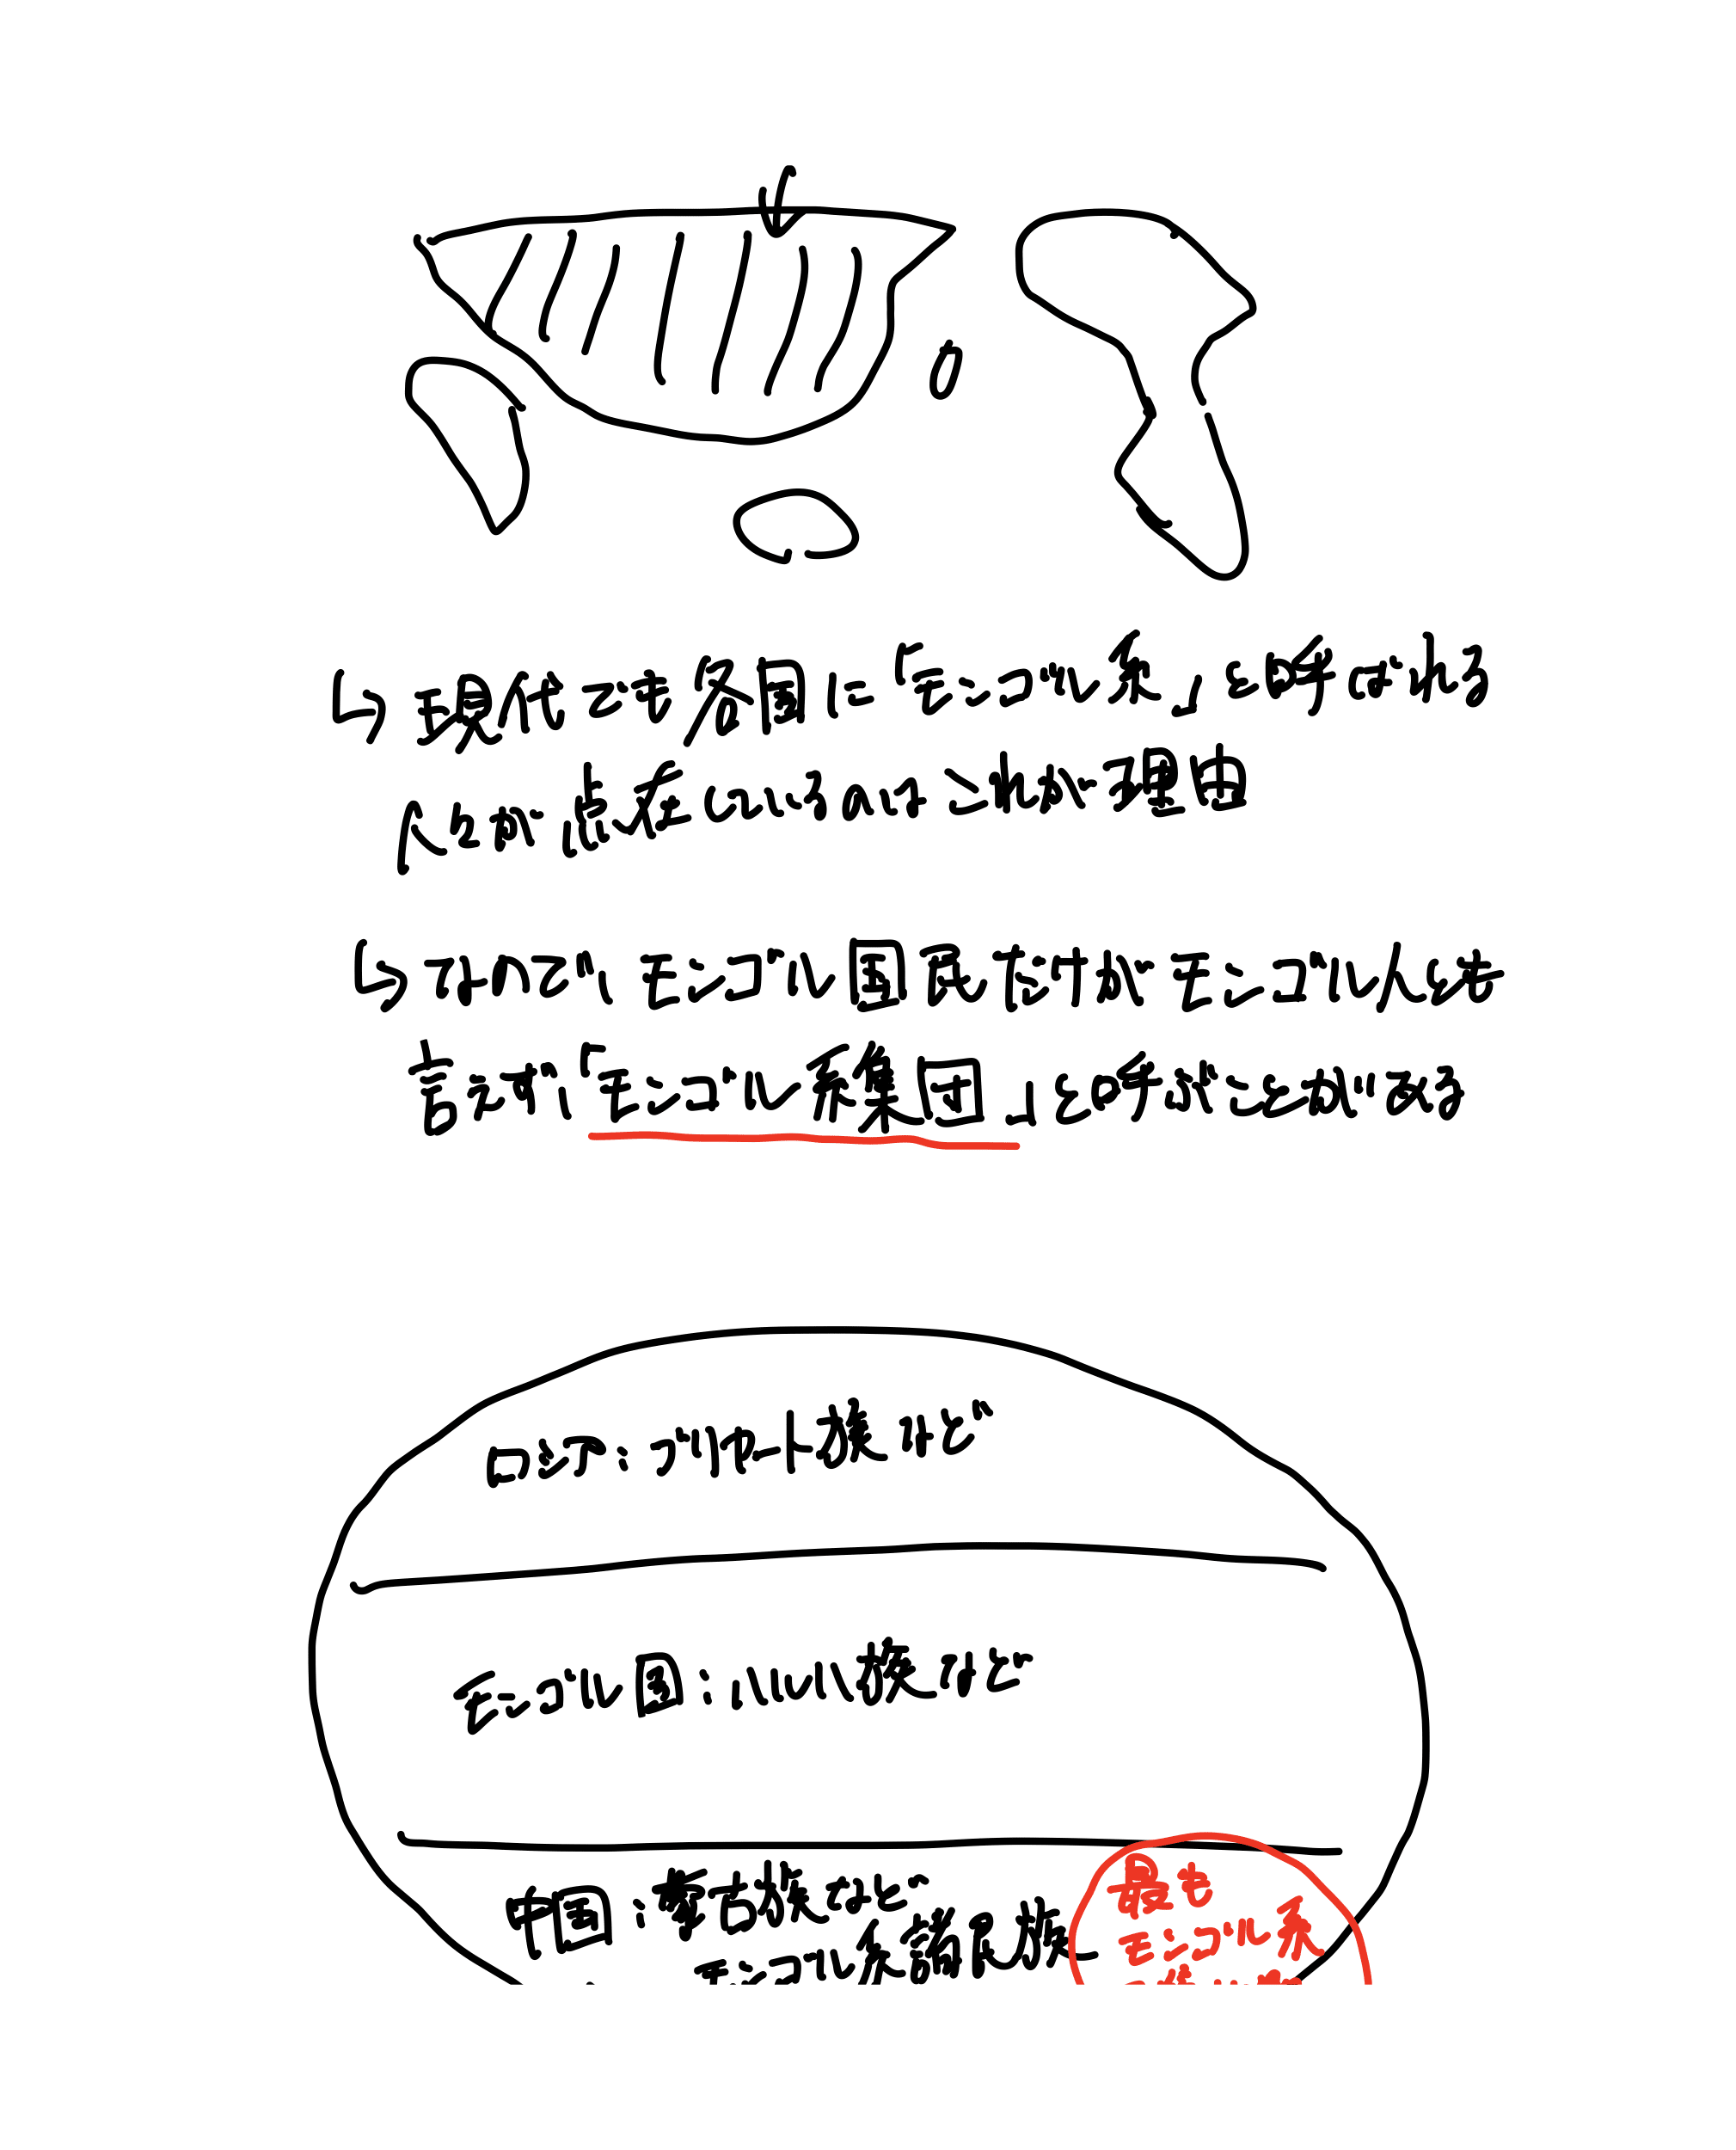 ↳現代でも各国に「モンゴル系」と呼ばれる
人々が点在しているのはこれが理由
↳なのでモンゴル国民だけがモンゴル人とも
言えず「モンゴル系集団」と呼ぶことがある
ロシア：ブリヤート族など
モンゴル国：ハルハ族など
中国：蒙古族など
モンゴル系諸民族
最も
モンゴル系